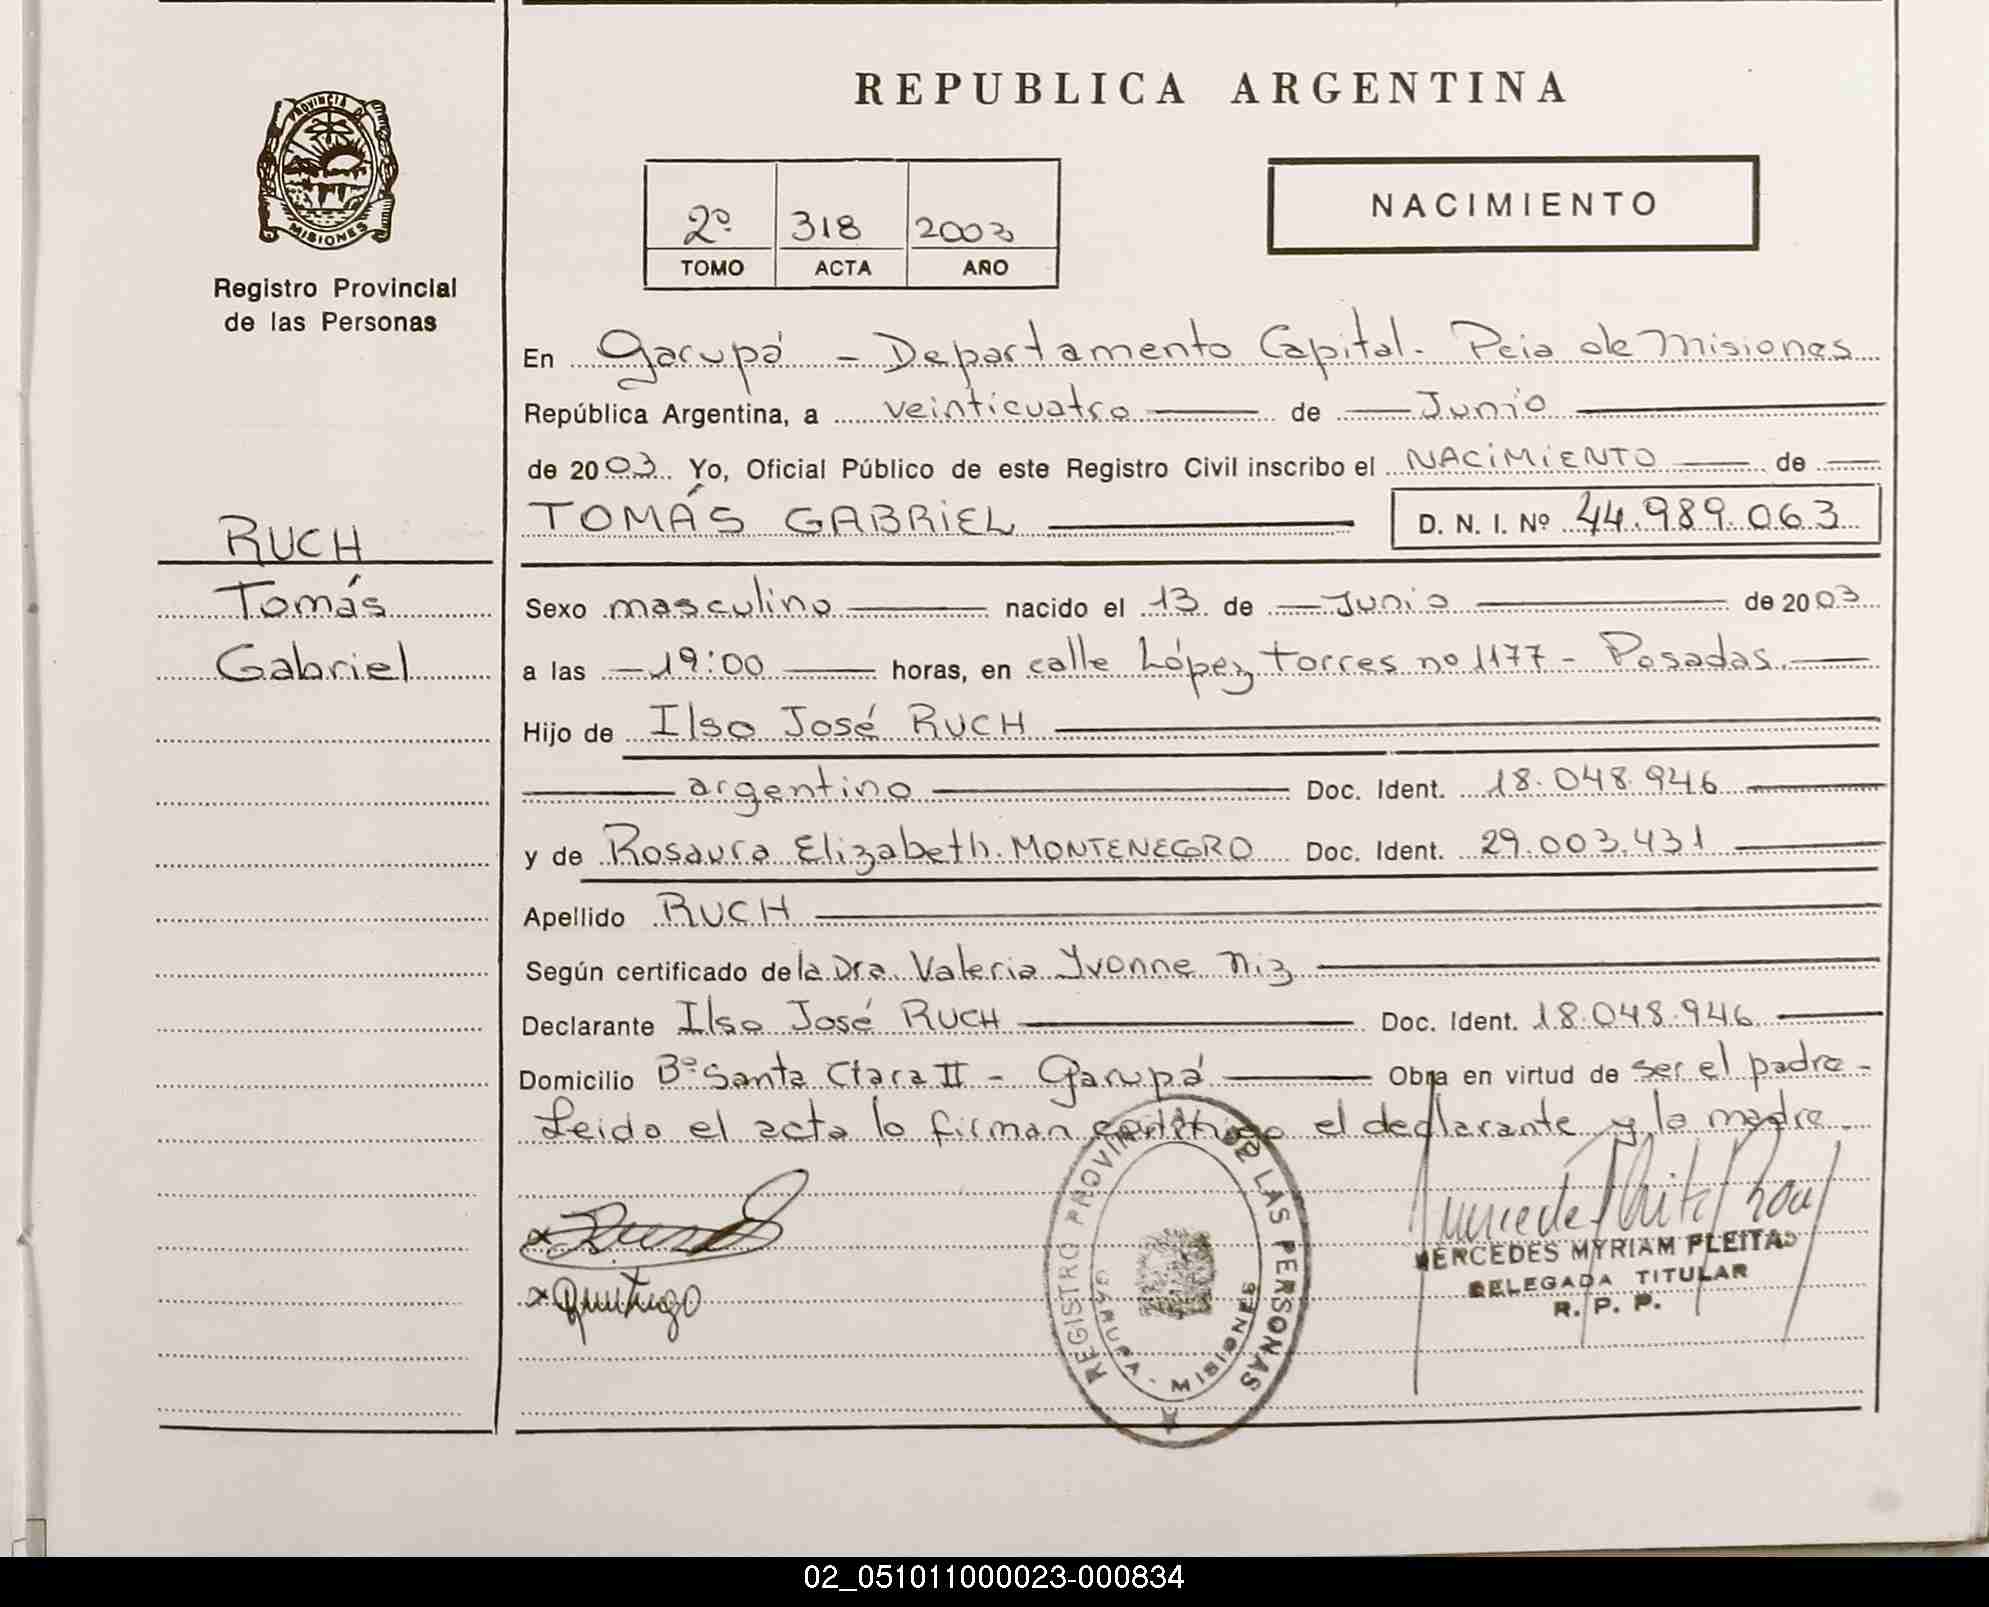 PROVINCIA DE
MISIONES
Registro Provincial
de las Personas
RUCH
Tomás
Gabriel
REPUBLICA ARGENTINA
2º 318 2003
TOMO ACTA AÑO
NACIMIENTO
En Garupá - Departamento Capital - Pcia de Misiones
República Argentina, a veinticuatro de Junio
de 2003 Yo, Oficial Público de este Registro Civil inscribo el NACIMIENTO de
TOMÁS GABRIEL D. N. I. Nº 44.989.063
Sexo masculino nacido el 13 de Junio de 2003
a las 19:00 horas, en calle López Torres nº 1177 - Posadas
Hijo de Ilso José RUCH
argentino Doc. Ident. 18.048.946
y de Rosaura Elizabeth MONTENEGRO Doc. Ident. 29.003.431
Apellido RUCH
Según certificado de la Dra. Valeria Yvonne Niz
Declarante Ilso José RUCH Doc. Ident. 18.048.946
Domicilio Bº Santa Clara II - Garupá Obra en virtud de ser el padre -
Leido el acta lo firman conmigo el declarante y la madre.
REGISTRO PROVINCIAL DE LAS PERSONAS
GARUPA - MISIONES
MERCEDES MYRIAM PLEITAS
DELEGADA TITULAR
R. P. P.
02_051011000023-000834